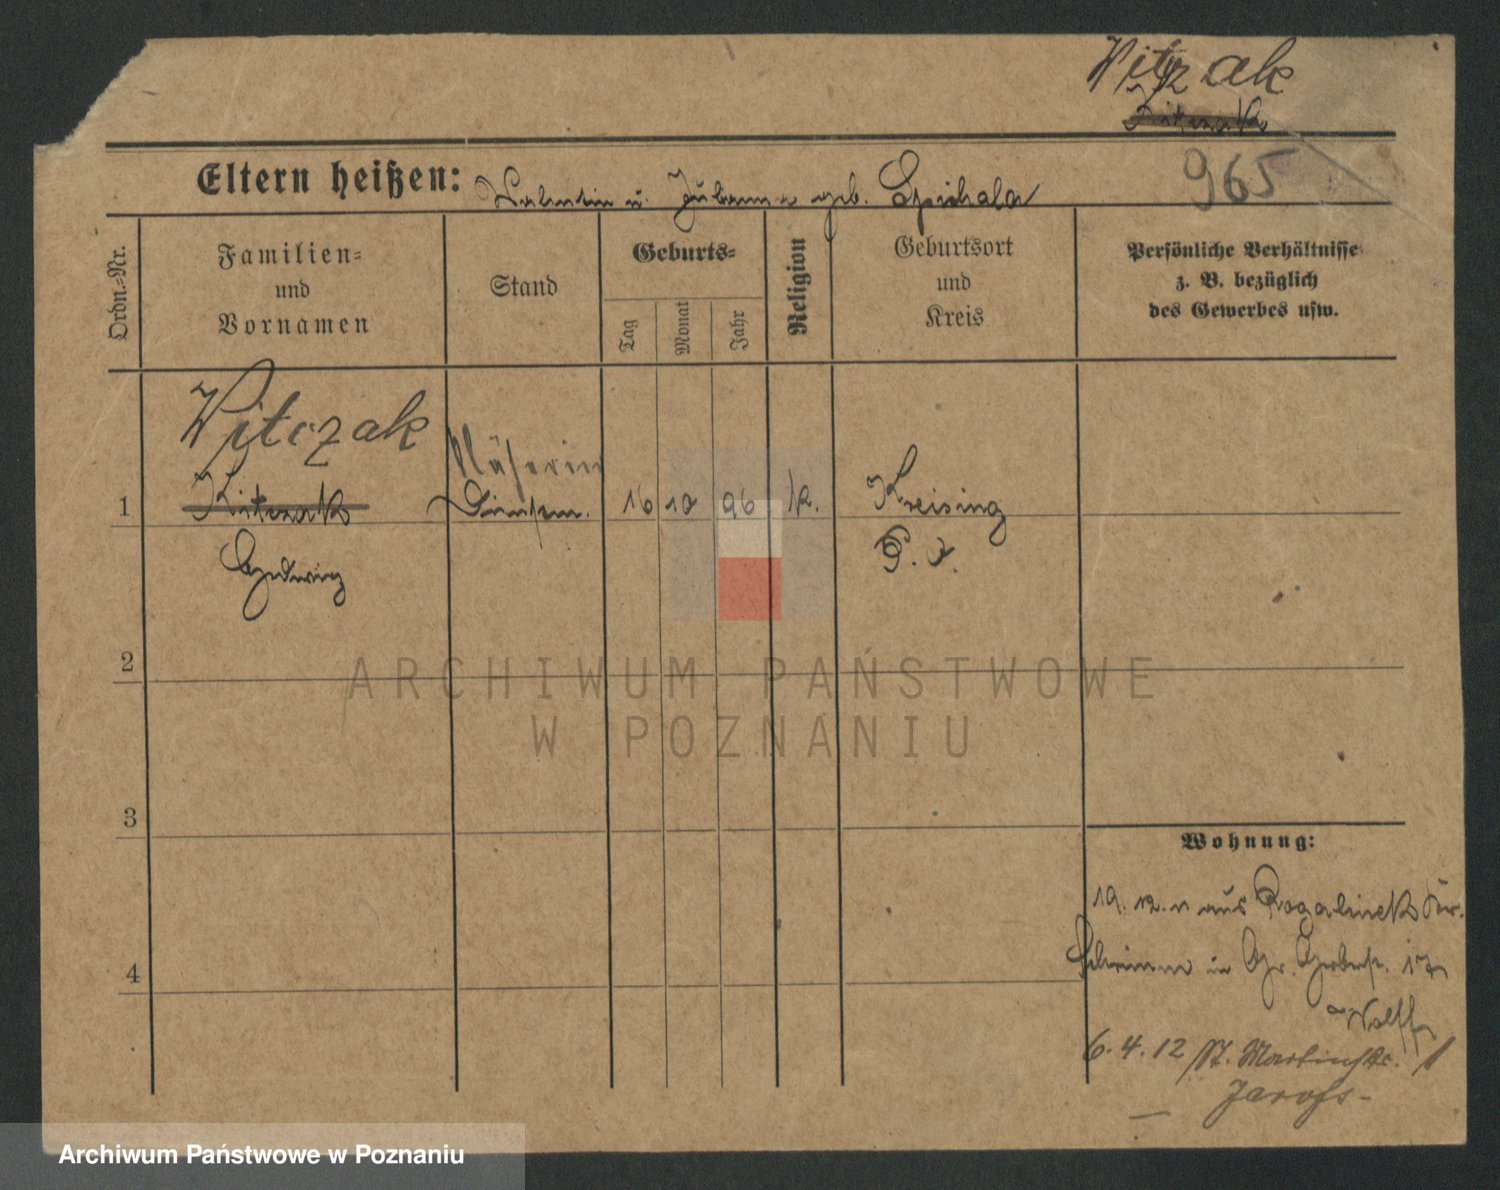 Witczak
965
Eltern heißen: Valentin u. Julianna geb. Spichala
Ordn.-Nr.
Familien-
und
Vornamen
Stand
Geburts-
Tag
Monat
Jahr
Religion
Geburtsort
und
Kreis
Persönliche Verhältnisse
z. B. bezüglich
des Gewerbes usw.
Witczak
Näherin
1
16 10 96 K. Kreising
Hedwig
P. O.
2
ARCHIWUM PAŃSTWOWE
W POZNANIU
3
Wohnung:
19. 12. 11 aus Rogalinek Kr.
4
Schrimm in Gr. Gerberstr. 17
Wolff
6. 4. 12 St. Martinstr. 1
Jarosz
Archiwum Państwowe w Poznaniu